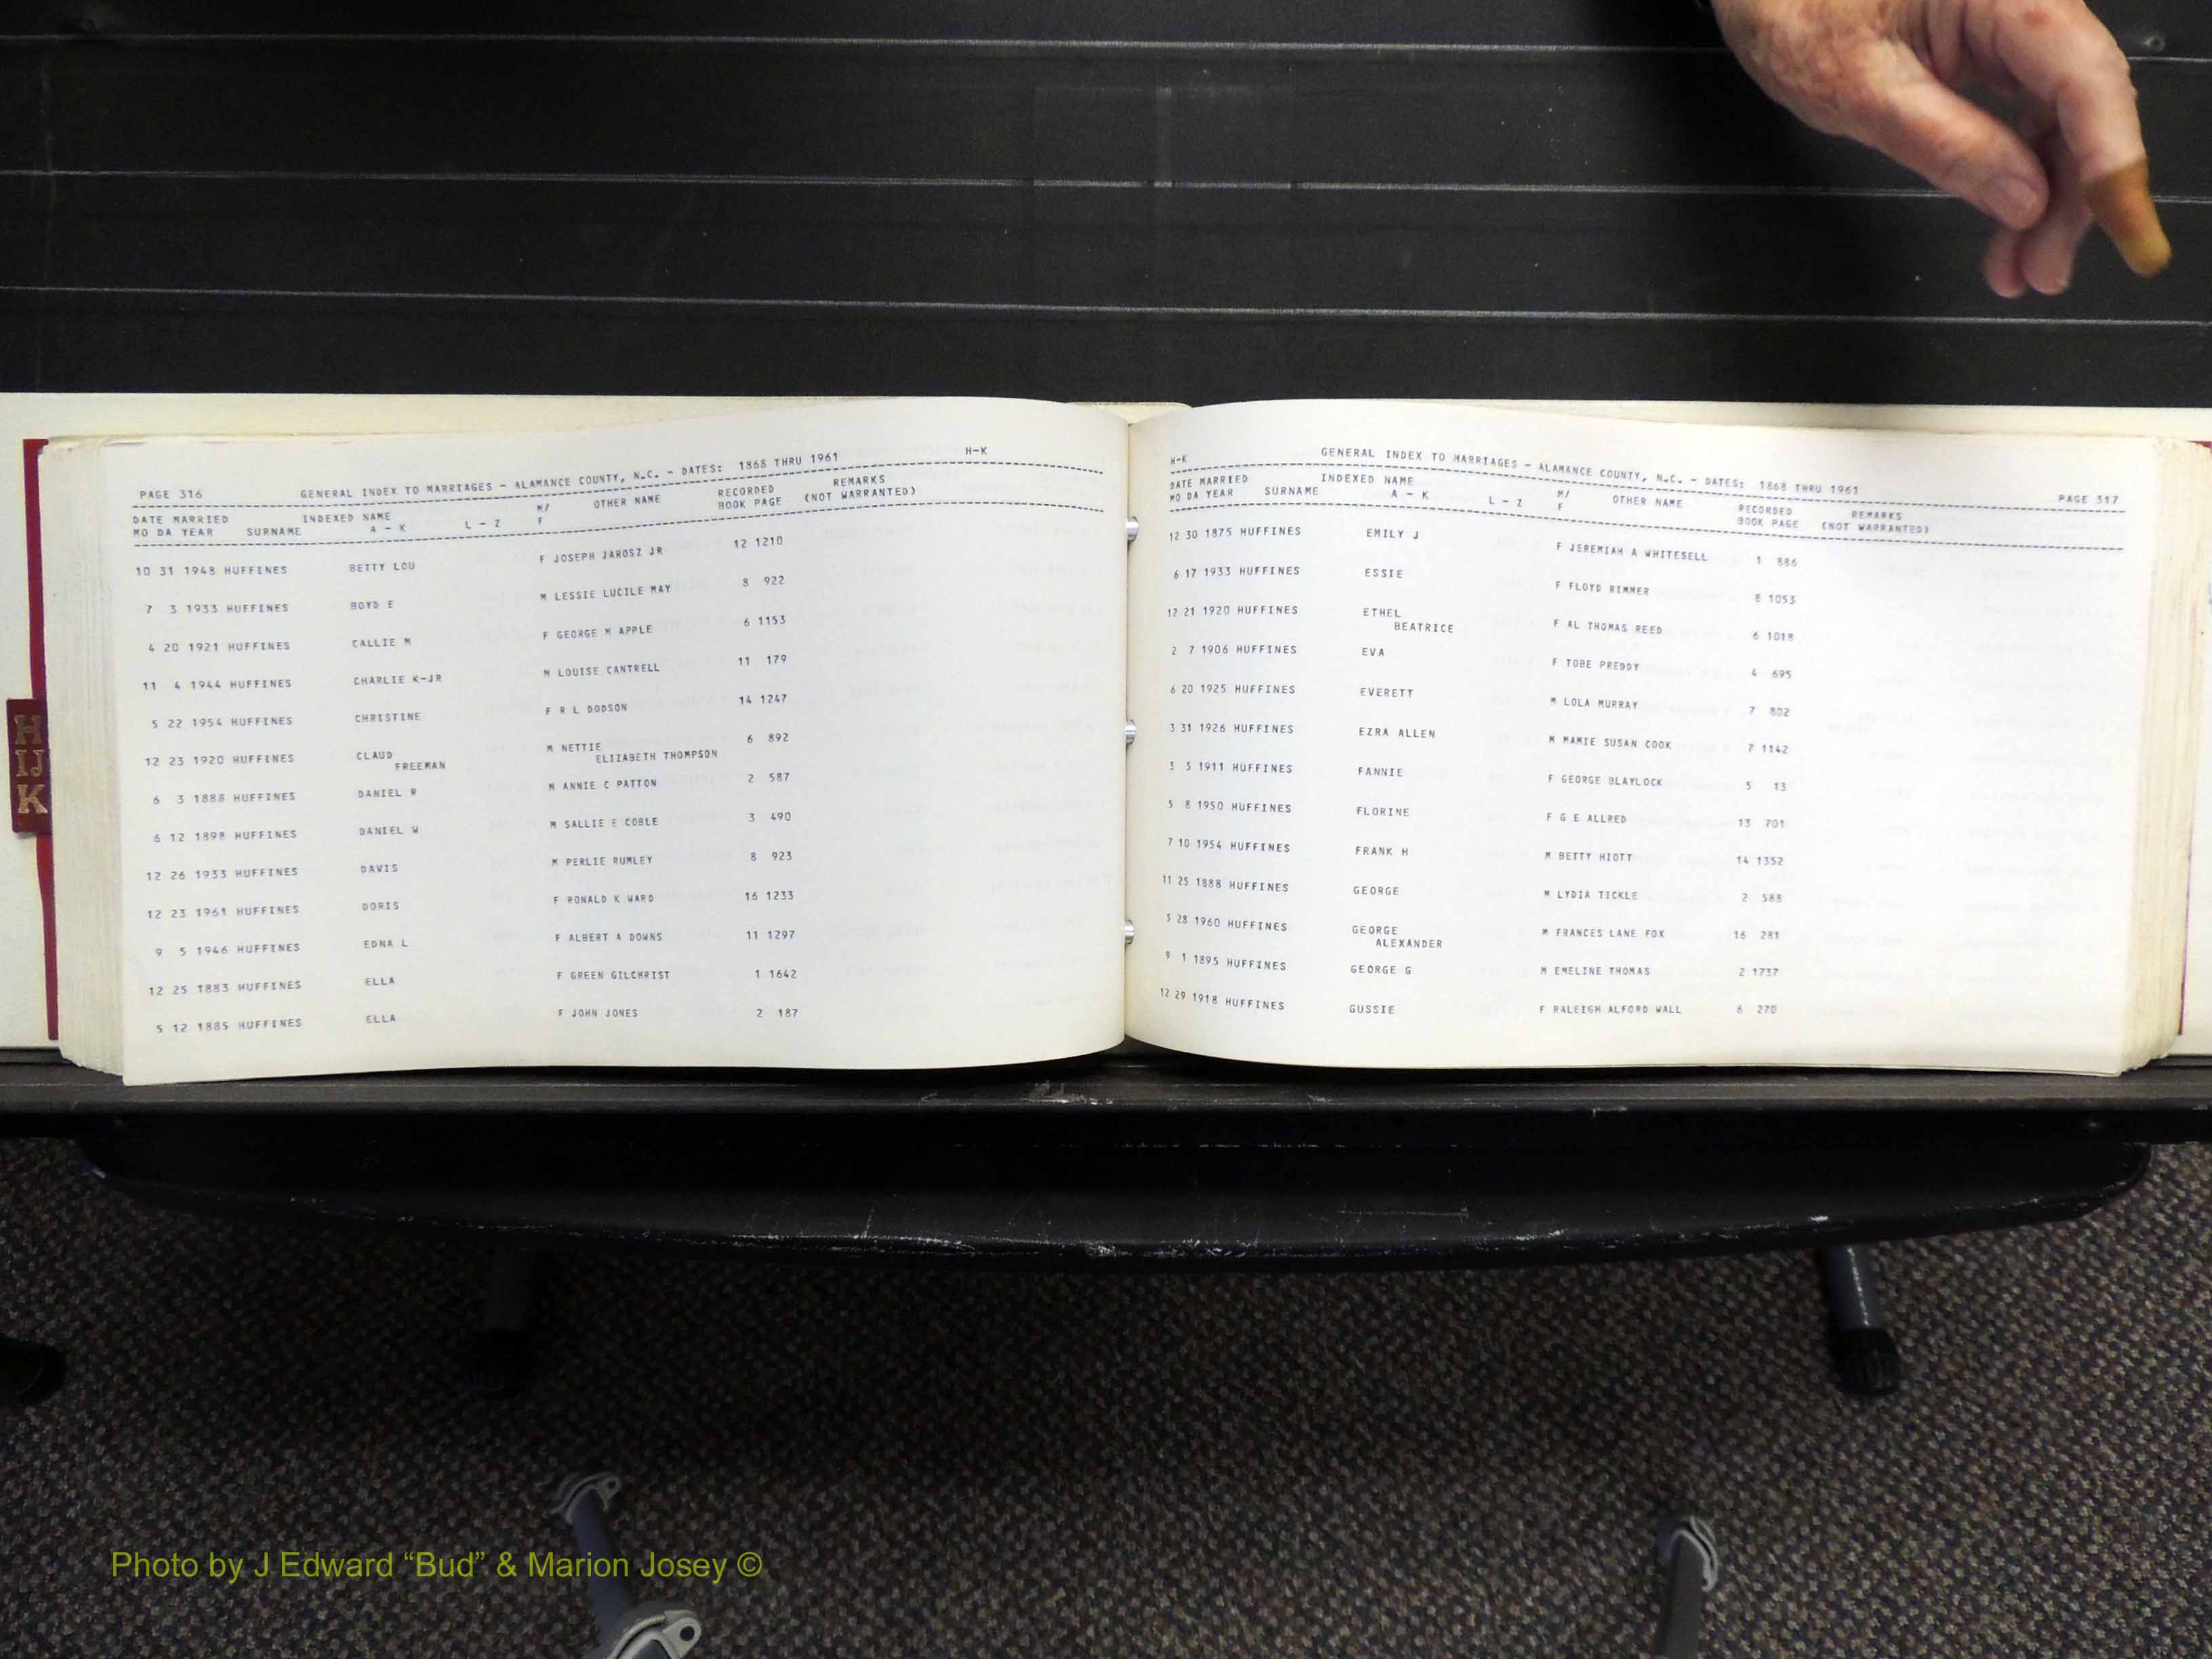 PAGE 316 GENERAL INDEX TO MARRIAGES - ALAMANCE COUNTY, N.C. - DATES: 1868 THRU 1961 H-K
DATE MARRIED INDEXED NAME M/ OTHER NAME RECORDED REMARKS
MO DA YEAR SURNAME A - K L - Z F BOOK PAGE (NOT WARRANTED)
10 31 1948 HUFFINES BETTY LOU F JOSEPH JAROSZ JR 12 1210
7 3 1933 HUFFINES BOYD E M LESSIE LUCILE MAY 8 922
4 20 1921 HUFFINES CALLIE M F GEORGE M APPLE 6 1153
11 4 1944 HUFFINES CHARLIE K-JR M LOUISE CANTRELL 11 179
5 22 1954 HUFFINES CHRISTINE F R L DODSON 14 1247
12 23 1920 HUFFINES CLAUD M NETTIE 6 892
FREEMAN ELIZABETH THOMPSON
6 3 1888 HUFFINES DANIEL R M ANNIE C PATTON 2 587
6 12 1898 HUFFINES DANIEL W M SALLIE E COBLE 3 490
12 26 1933 HUFFINES DAVIS M PERLIE RUMLEY 8 923
12 23 1961 HUFFINES DORIS F RONALD K WARD 16 1233
9 5 1946 HUFFINES EDNA L F ALBERT A DOWNS 11 1297
12 25 1883 HUFFINES ELLA F GREEN GILCHRIST 1 1642
5 12 1885 HUFFINES ELLA F JOHN JONES 2 187
H-K GENERAL INDEX TO MARRIAGES - ALAMANCE COUNTY, N.C. - DATES: 1868 THRU 1961 PAGE 317
DATE MARRIED INDEXED NAME M/ OTHER NAME RECORDED REMARKS
MO DA YEAR SURNAME A - K L - Z F BOOK PAGE (NOT WARRANTED)
12 30 1875 HUFFINES EMILY J F JEREMIAH A WHITESELL 1 886
6 17 1933 HUFFINES ESSIE F FLOYD RIMMER 8 1053
12 21 1920 HUFFINES ETHEL F AL THOMAS REED 6 1018
BEATRICE
2 7 1906 HUFFINES EVA F TOBE PREDDY 4 695
6 20 1925 HUFFINES EVERETT M LOLA MURRAY 7 802
3 31 1926 HUFFINES EZRA ALLEN M MAMIE SUSAN COOK 7 1142
3 5 1911 HUFFINES FANNIE F GEORGE BLAYLOCK 5 13
5 8 1950 HUFFINES FLORINE F G E ALLRED 13 701
7 10 1954 HUFFINES FRANK H M BETTY HIOTT 14 1352
11 25 1888 HUFFINES GEORGE M LYDIA TICKLE 2 588
5 28 1960 HUFFINES GEORGE M FRANCES LANE FOX 16 281
ALEXANDER
9 1 1895 HUFFINES GEORGE G M EMELINE THOMAS 2 1737
12 29 1918 HUFFINES GUSSIE F RALEIGH ALFORD WALL 6 270
H
IJ
K
Photo by J Edward “Bud” & Marion Josey ©